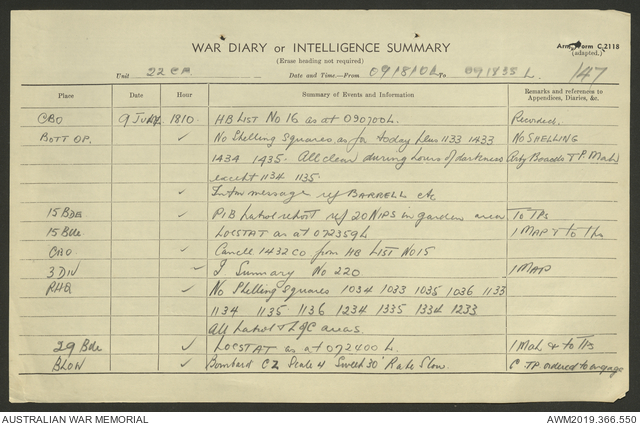 WAR DIARY or INTELLIGENCE SUMMARY
(Erase heading not required)
Army Form C.2118
(adapted.)
Unit 22 Date and Time—From 091810L To 091835 L. 147
Place Date Hour Summary of Events and Information Remarks and references to Appendices, Diaries, &c.
CBO 9 July 1810. HB LIST No 16 as at 090700L. Recorded.
BOTT OP. ✓ No Shelling Squares as for today plus 1133 1433 NO SHELLING
1434 1435. All clear during hours of darkness Arty Boards & T P Map
except 1134 1135.
✓ Infm message ref BARRELL etc
15 BDE ✓ PIB Patrol report ref 20 NIPS in garden area To TPs
15 Bde LOCSTAT as at 072359L 1 MAP & to TPs
CBO ✓ Cancel 1432 CO from HB LIST NO 15
3 DIV ✓ I Summary No 220 1 MAP
RHQ ✓ No Shelling Squares 1034 1033 1035 1036 1133
1134 1135 1136 1234 1335 1334 1233
All Patrol areas
29 Bde ✓ LOCSTAT as at 072400 L. 1 Map & to TPs
BLOW ✓ Bombard C2 Scale 4 'Sweep 30' Rate Slow. C TP ordered to engage
AUSTRALIAN WAR MEMORIAL
AWM2019.366.550